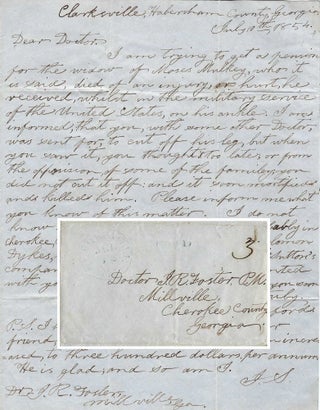 Clarksville, Habersham County, Georgia
July 1854,
Dear Doctor,
I am trying to get a pension
for the widow of Moses Mulkey, who it
is said, died of an injury, or hurt, he
received, whilst in the military service
of the United States, on his ankle. I am
informed, that you, with some other Doctor,
was sent for, to cut off his leg, but when
you saw it, you thought too late, or from
the opposition of some of the family, you
did not cut it off: and it soon mortified
and killed him. Please inform me what
you know of this matter. I do not
know
Cherokee,
Fykes,
compan
with yo
P.S. I
friend,
ased, to three hundred dollars, per annum
He is glad; and so am I. J. S.
Dr. J. R. Foster,
Millville, Ga
3
Doctor J. R. Foster P.M.
Millville,
Cherokee County
Georgia